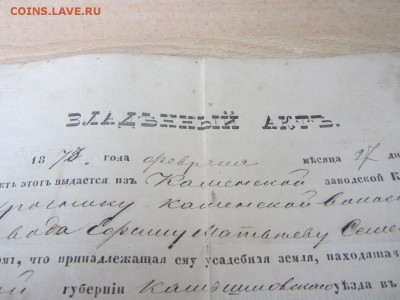 COINS.LAVE.RU
ВЛАДѢННЫЙ АКТЪ.
187 года февраля мѣсяца 27 дн
ктъ этотъ выдается изъ Каменской заводской К
Каменской волос
вода Матвѣеву Семе
омъ, что принадлежащая ему усадебная земля, находяща
ой губерніи Камышловскаго уѣзда въ